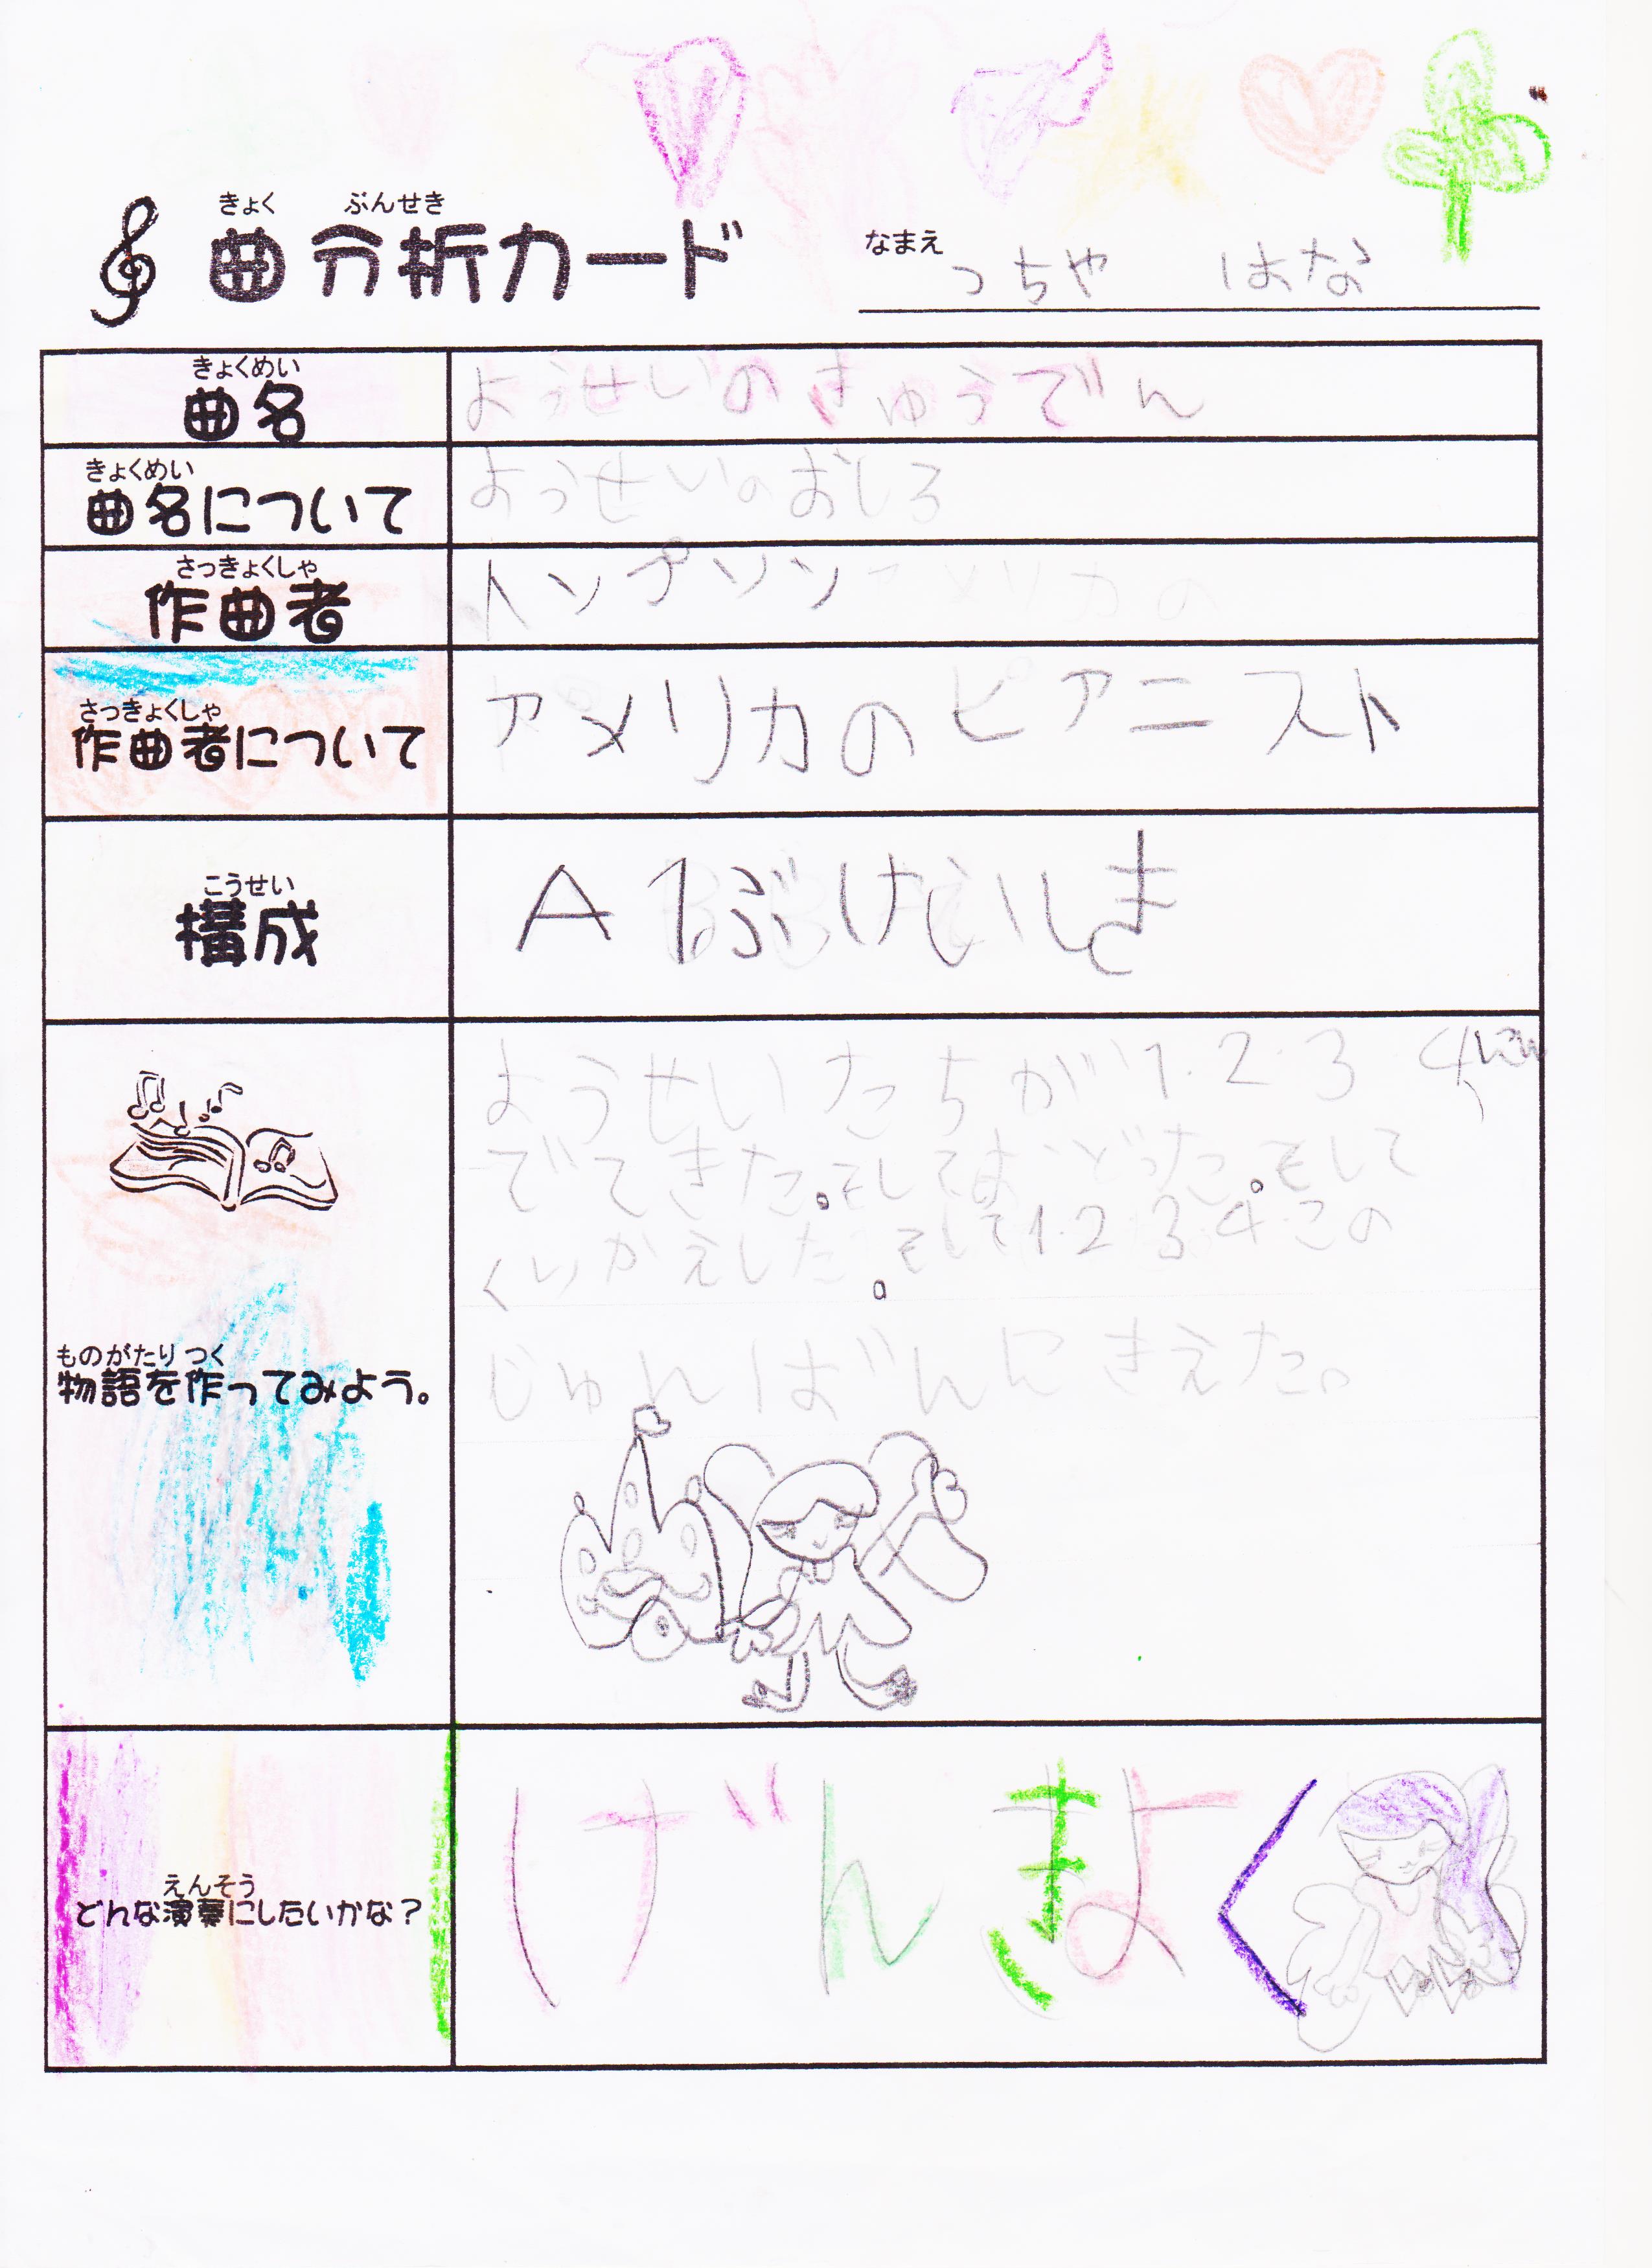 きょく ぶんせき
曲分析カード
なまえ
つちや はな
きょくめい
曲名
ようせいのきゅうでん
きょくめい
曲名について
ようせいのおしろ
さっきょくしゃ
作曲者
トンプソン アメリカの
さっきょくしゃ
作曲者について
アメリカのピアニスト
こうせい
構成
A 1ぶけいしき
ものがたり つく
物語を作ってみよう。
ようせいたちが1.2.3 4にん
でてきた。そしておどった。そして
くりかえした。そして1.2.3.4.この
じゅんばんにきえた。
えんそう
どんな演奏にしたいかな？
げんきよく